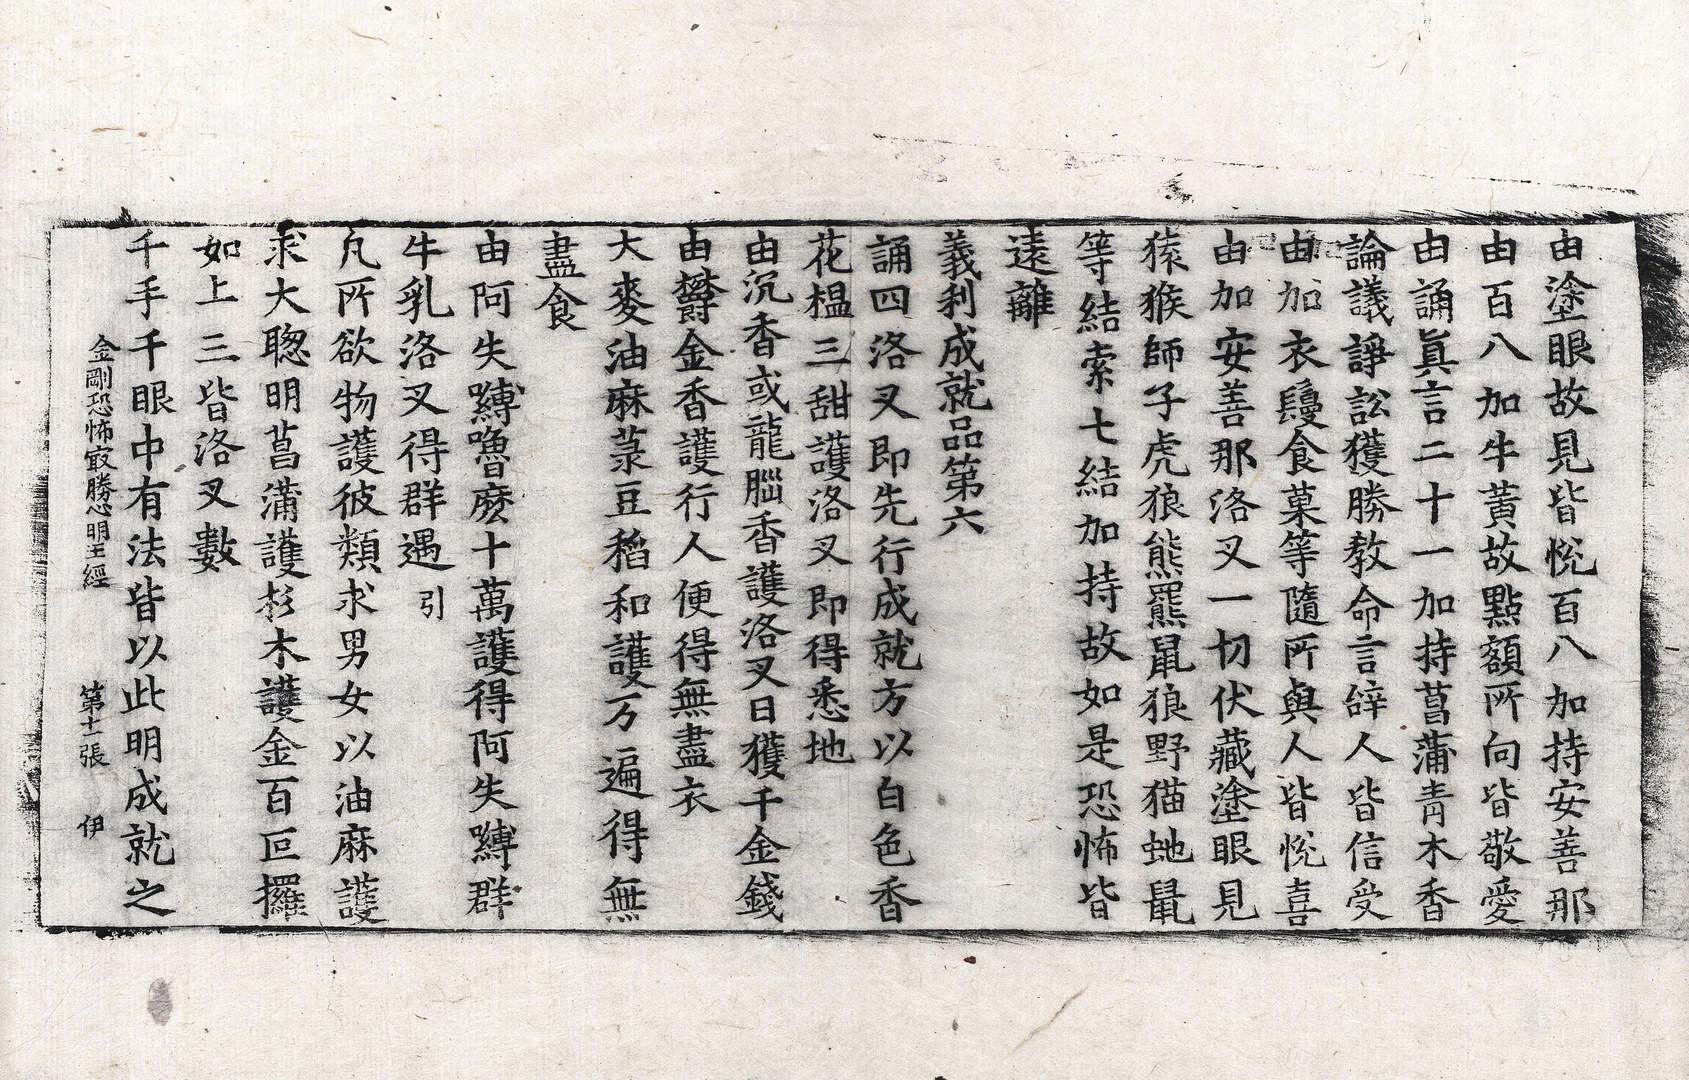 由塗眼故見皆悅百八加持安善那
由百八加牛黃故點額所向皆敬愛
由誦眞言二十一加持菖蒲青木香
論議諍訟獲勝教命言辝人皆信受
由加衣鬘食菓等隨所與人皆悅喜
由加安善那洛叉一切伏藏塗眼見
猿猴師子虎狼熊羆鼠狼野猫虵鼠
等結索七結加持故如是恐怖皆
遠離
義利成就品第六
誦四洛叉即先行成就方以白色香
花榅三甜護洛叉即得悉地
由沉香或龍腦香護洛叉日獲千金錢
由欝金香護行人便得無盡衣
大麥油麻菉豆稻和護万遍得無
盡食
由阿失嚩嚕麽十萬護得阿失嚩群
牛乳洛叉得群遇引
凡所欲物護彼類求男女以油麻護
求大聦明菖蒲護杉木護金百叵攞
如上三皆洛叉數
千手千眼中有法皆以此明成就之
金剛恐怖㝡勝心明王經　第十一張　伊